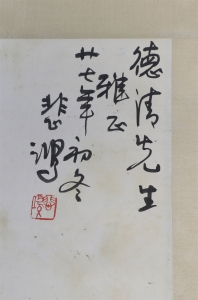 德清先生
雅正
廿七年初冬
悲鴻